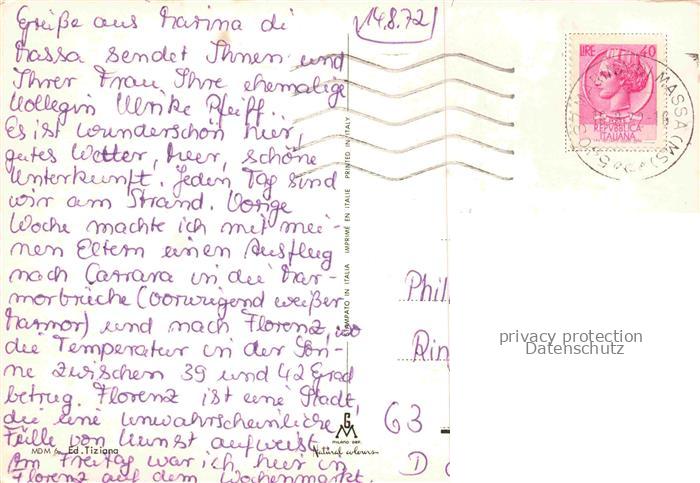 Grüße aus Marina di
Massa sendet Ihnen und
Ihrer Frau Ihre ehemalige
Kollegin Ulrike Pfeiff..
Es ist wunderschön hier,
gutes Wetter, Meer, schöne
Unterkunft. Jeden Tag sind
wir am Strand. Vorige
Woche machte ich mit mei-
nen Eltern einen Ausflug
nach Carrara in die Mar-
morbrüche (vorwiegend weißer
Marmor) und nach Florenz, wo
die Temperatur in der Son-
ne zwischen 39 und 42 Grad
betrug. Florenz ist eine Stadt,
die eine unwahrscheinliche
Fülle von Kunst aufweist.
Am Freitag war ich hier in
Florenz auf dem Wochenmarkt.
MDM Ed. Tiziana
14.8.72
STAMPATO IN ITALIA IMPRIMÉ EN ITALIE PRINTED IN ITALY
GM
MILANO DEP.
Natural colours
LIRE 40
REPVBBLICA
ITALIANA
MASSA (MS)
Phil
Rin
63
D
privacy protection
Datenschutz